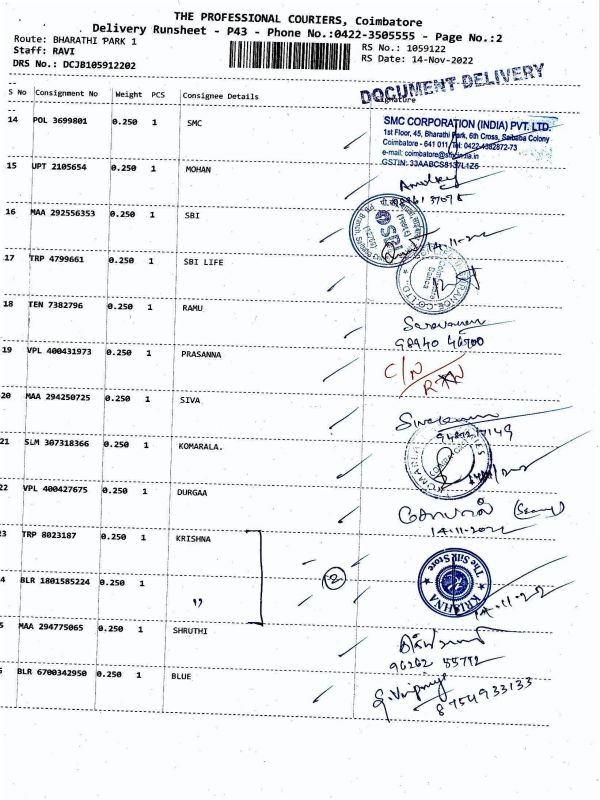 THE PROFESSIONAL COURIERS, Coimbatore
Delivery Runsheet - P43 - Phone No.:0422-3505555 - Page No.:2
Route: BHARATHI PARK 1
RS No.: 1059122
Staff: RAVI
RS Date: 14-Nov-2022
DRS No.: DCJB105912202
DOCUMENT DELIVERY
S No Consignment No Weight PCS Consignee Details Signature
14 POL 3699801 0.250 1 SMC
SMC CORPORATION (INDIA) PVT. LTD.
1st Floor, 45, Bharathi Park, 6th Cross, Saibaba Colony
Coimbatore - 641 011, Tel: 0422-4382872-73
e-mail: coimbatore@smcindia.in
15 UPT 2105654 0.250 1 MOHAN
16 MAA 292556353 0.250 1 SBI
SBI
17 TRP 4799661 0.250 1 SBI LIFE
18 TEN 7382796 0.250 1 RAMU
Saravanan
19 VPL 400431973 0.250 1 PRASANNA
C/N
20 MAA 294250725 0.250 1 SIVA
21 SLM 307318366 0.250 1 KOMARALA.
22 VPL 400427675 0.250 1 DURGAA
14-11-2022
23 TRP 8023187 0.250 1 KRISHNA
2
KRISHNA
The Silk Store
4 BLR 1801585224 0.250 1 "
14-11-22
5 MAA 294775065 0.250 1 SHRUTHI
BLR 6700342950 0.250 1 BLUE
8754933133